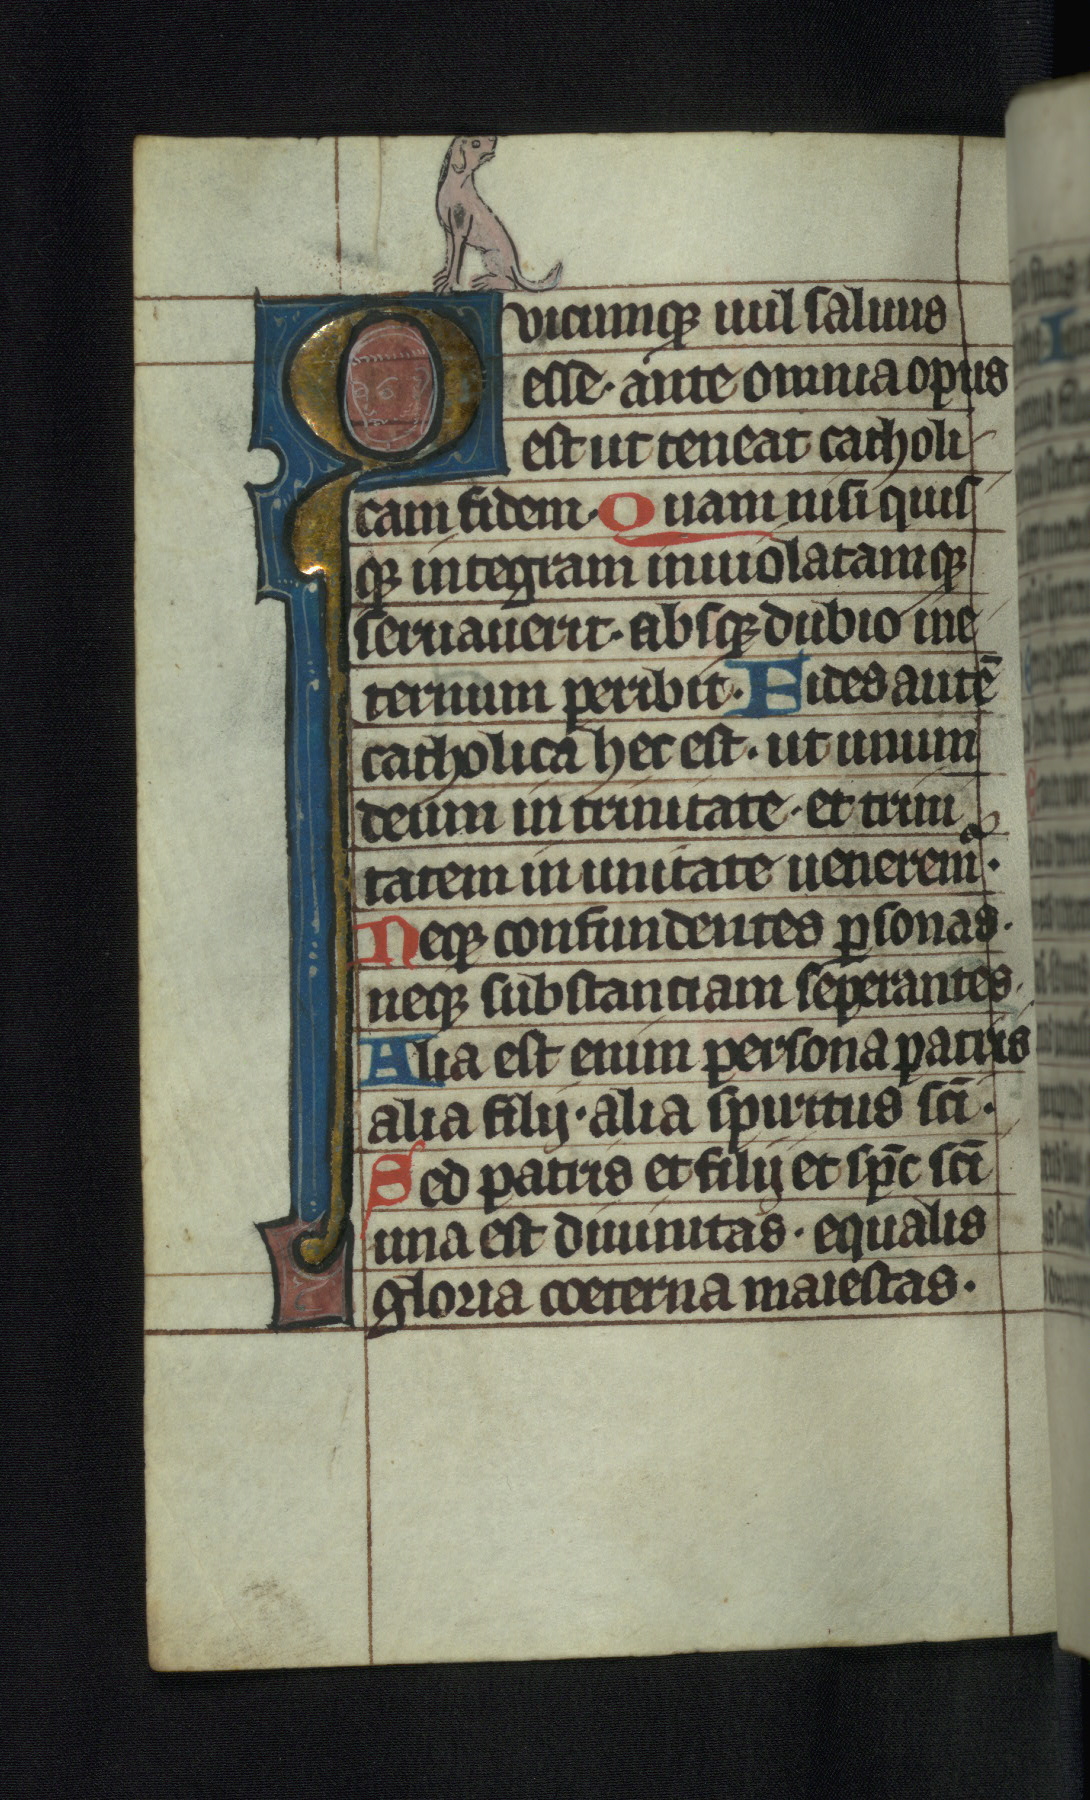 Quicumqꝫ uul saluus
esse· ante omnia opus
est ut teneat catholi
cam fidem· Quam nisi quis
qꝫ integram inuiolatamqꝫ
seruauerit· absqꝫ dubio ine
ternum peribit· Fides autē
catholica hec est· ut unum
deum in trinitate· et trini
tatem in unitate ueneremꝰ·
Neqꝫ confundentes ꝑsonas·
neqꝫ substanciam seperantes·
Alia est enim persona patris
alia filij· alia spiritus sc̄i·
Sed patris et filij et sp̄c sc̄i
una est diuinitas· equalis
gloria coeterna maiestas·